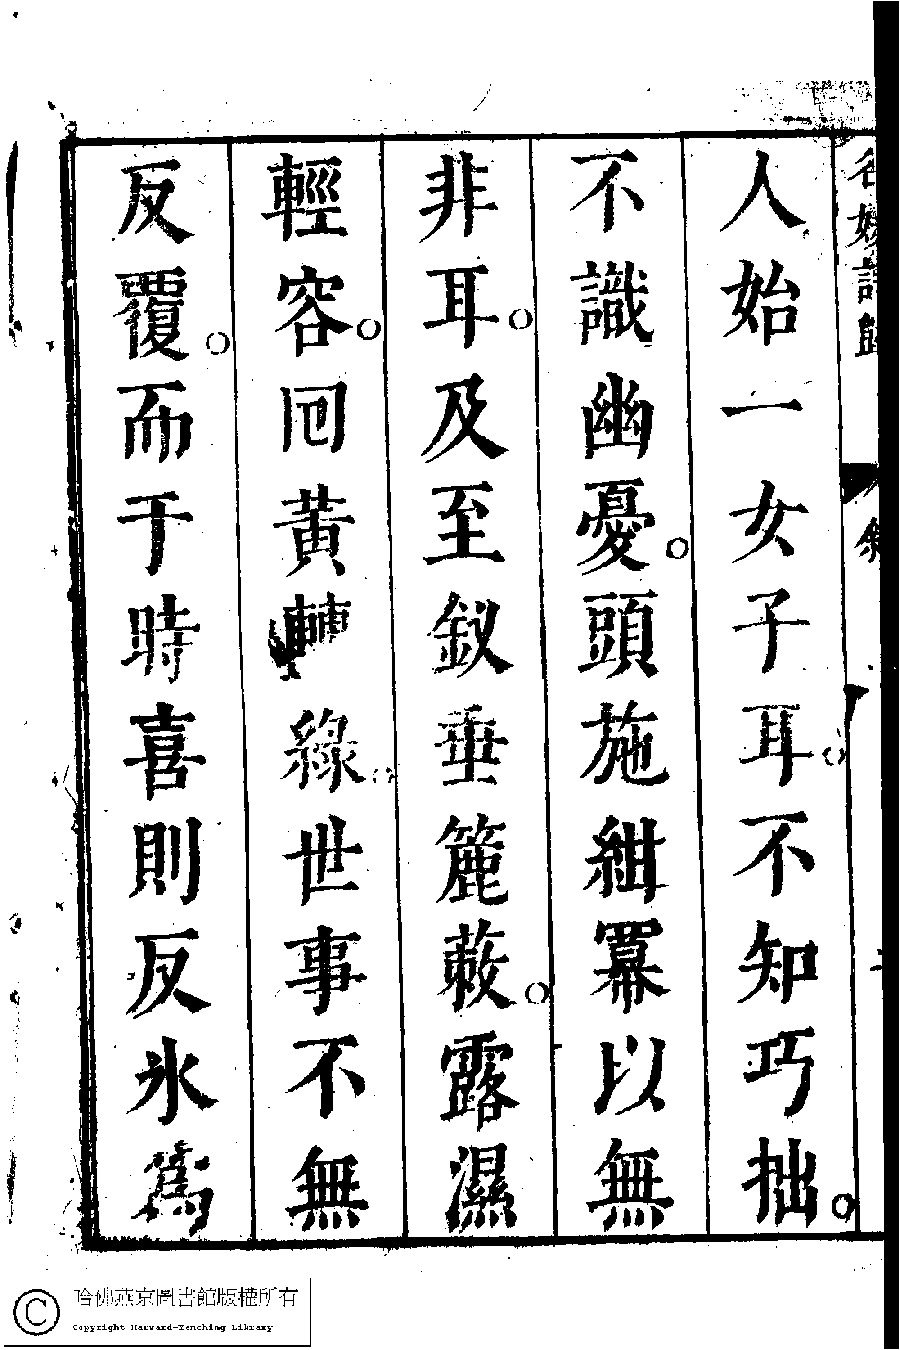 名媛詩歸
敘
人始一女子耳不知巧拙
不識幽憂頭施紺羃以無
非耳及至釵垂簏簌露濕
輕容回黃轉綠世事不無
反覆而于時喜則反氷爲
哈佛燕京圖書館版權所有
Copyright Harvard-Yenching Library